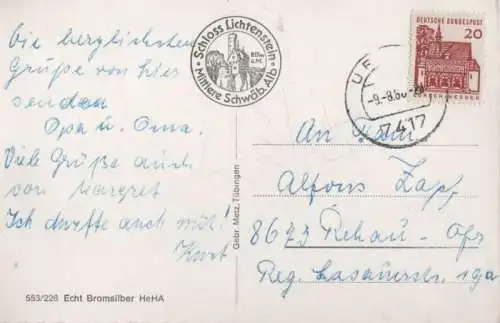 Die herzlichsten
Grüße von hier
senden
Opa u. Oma.
Viele Grüße auch
von Margret
Ich durfte auch mit!
Kurt
Schloss Lichtenstein
Mittlere Schwäb. Alb
DEUTSCHE BUNDESPOST
20
LORSCH/HESSEN
-9.-8.66
7417
An Fam.
Alfons Zapf
8673 Rehau - Ofr
Reg.
Gebr. Metz, Tübingen
553/226 Echt Bromsilber HeHA